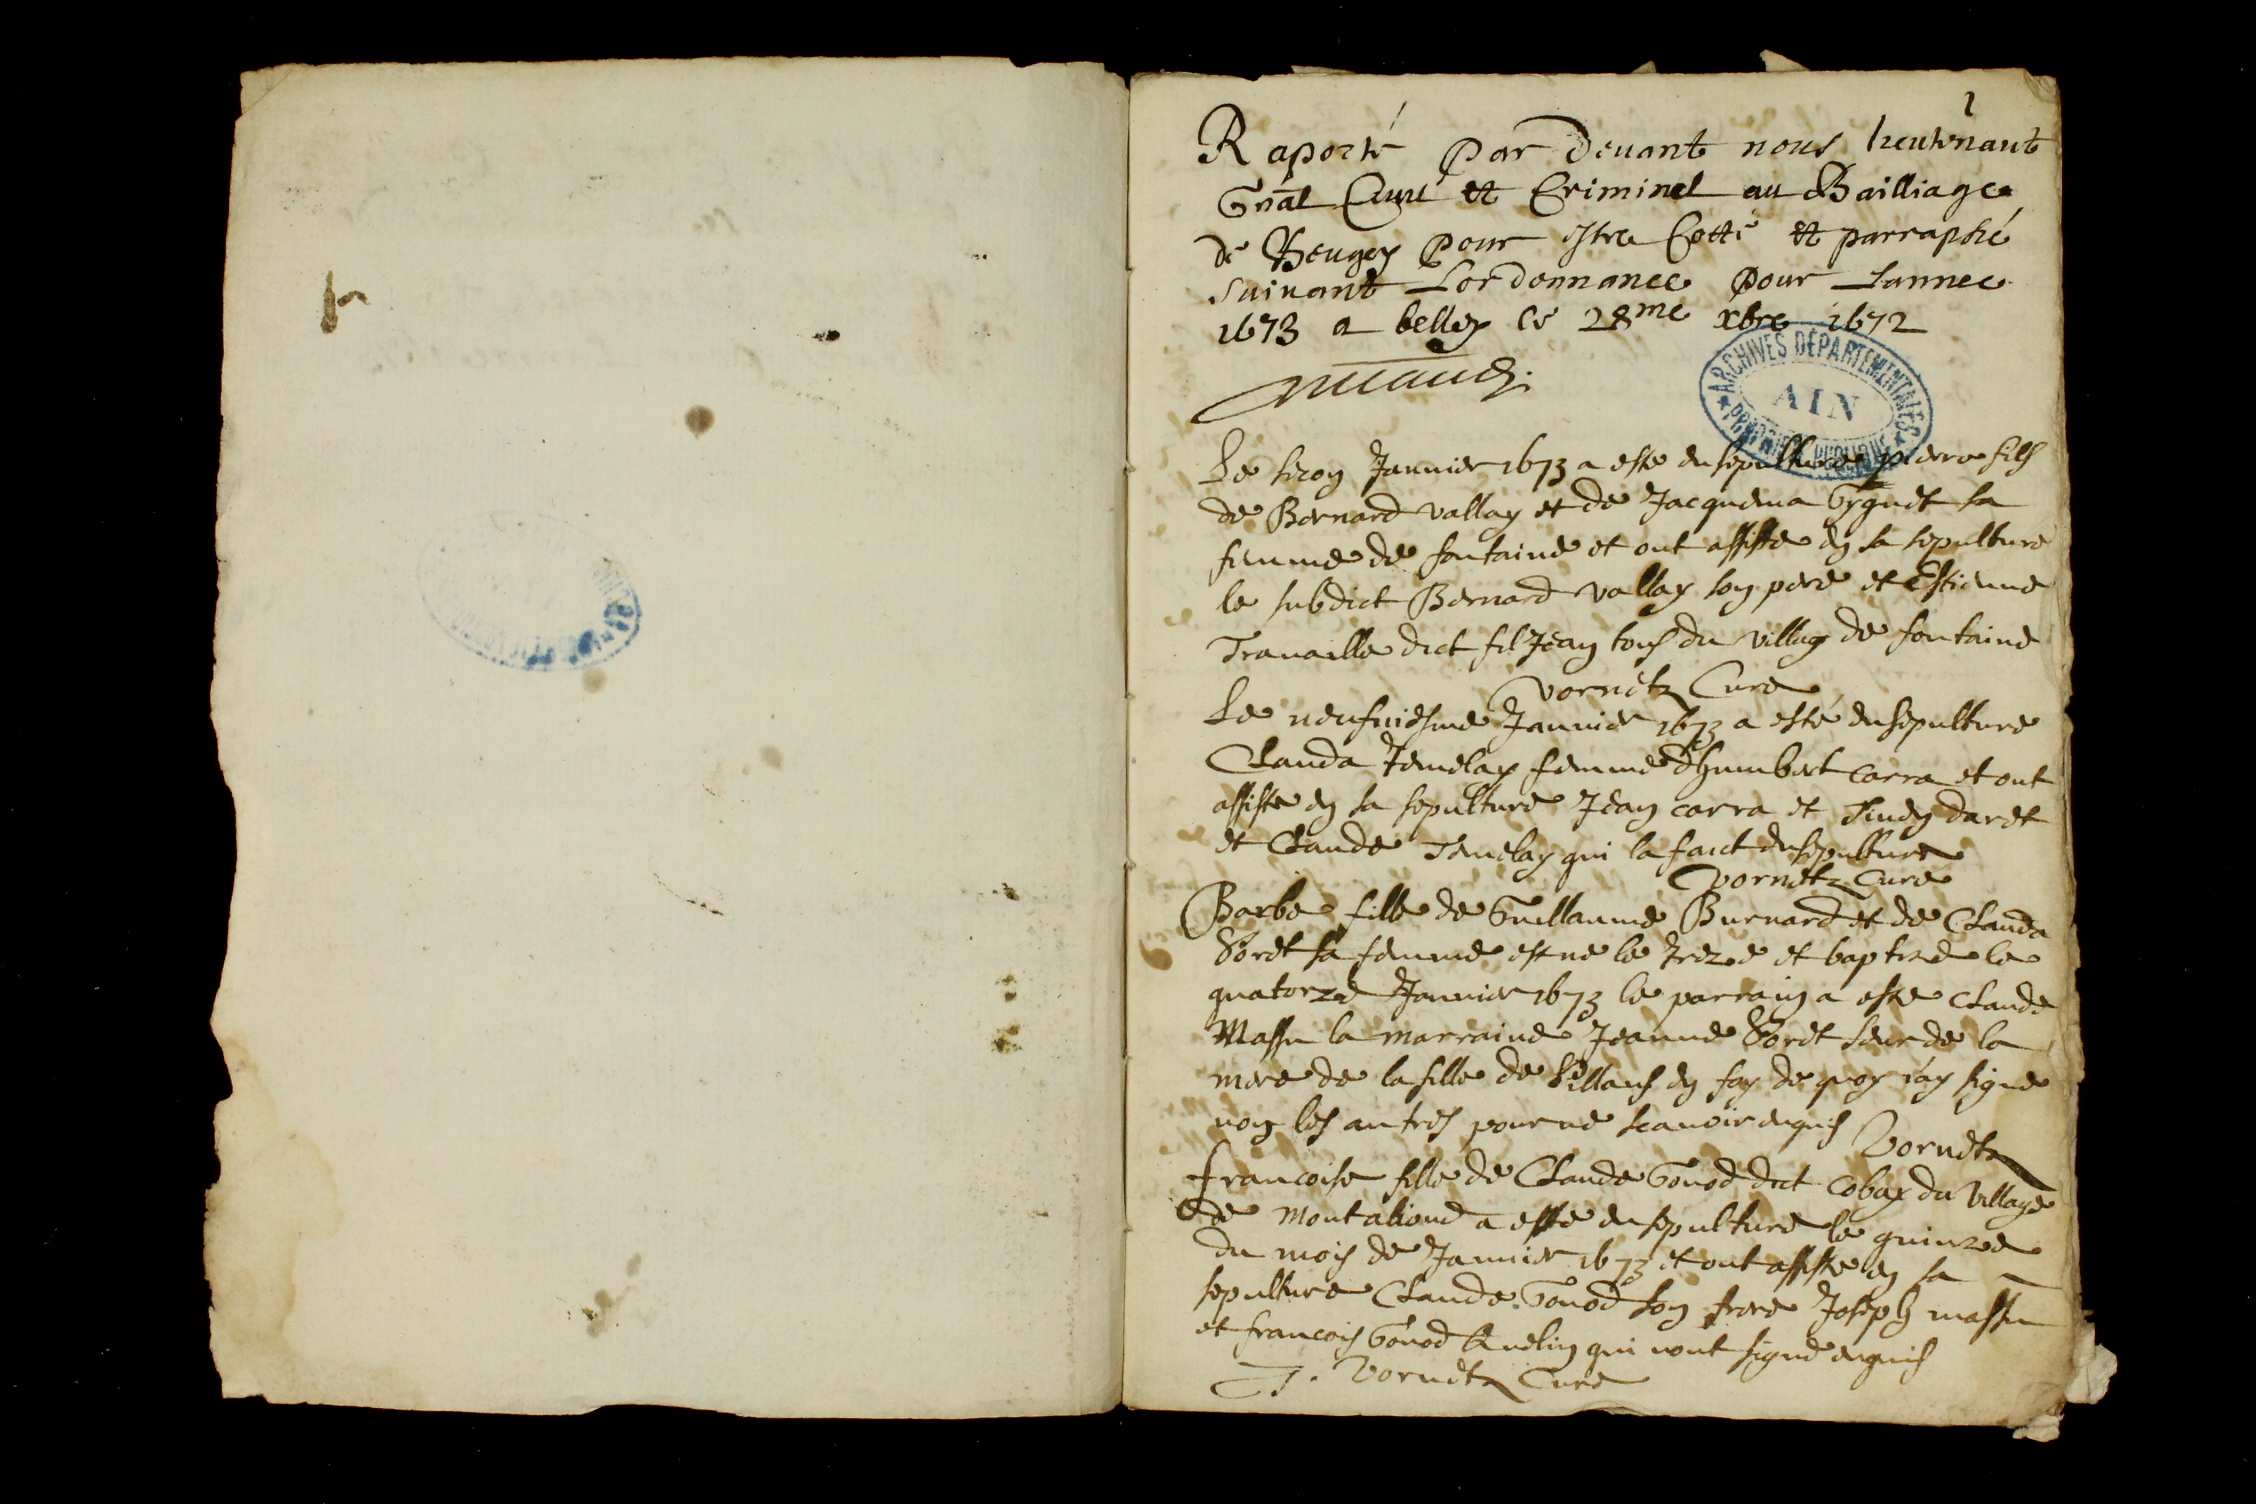 1
Raporté par Devant nous lieutenant
Gnâl Civil et Criminel au Bailliage
de Beugey pour estre Cotté et parraphé
suivant Lordonnance pour Lannee
1673 a belley ce 28me xbre 1672
ARCHIVES DEPARTEMENTALES
AIN
PROPRIÉTÉ PUBLIQUE
Le Janvier 1673 a este ensepulture pierre fils
de Bernard vallay et de Jacquema sa
femme de fontaine et ont assiste en sa sepulture
le subdict Bernard vallay son pere et Estienne
Travaille dict fil Jean tous du village de fontaine
Vornetz Cure
Le neufviesme Janvier 1673 a esté ensepulture
Clauda Temelay femme dhumbert carra et ont
assiste en sa sepulture Jean carra et daret
et Claude Temelay qui la faict ensepulture
Vornetz Cure
Barbe fille de Guillaume Burnard et de Clauda
Boret sa femme est ne le treze et baptize le
quatorze Janvier 1673 le parrain a este Claude
Massu la marraine Jeanne Boret seur de la
mere de la fille de en foy de quoy iay signe
non les autres pour ne scavoir enquis Vornetz
francoise fille de Claude Gonod dict cobay du village
de a este ensepulture le quinze
du mois de Janvier 1673 et ont assiste en sa
sepulture Claude Gonod son frere Joseph massu
et francois Gonod qui nont signe enquis
J. Vornetz Cure